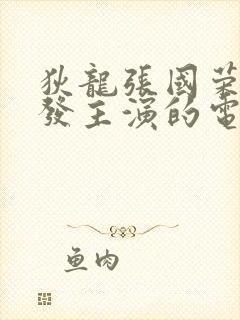 狄龍張國荣
發主演的電
鱼肉